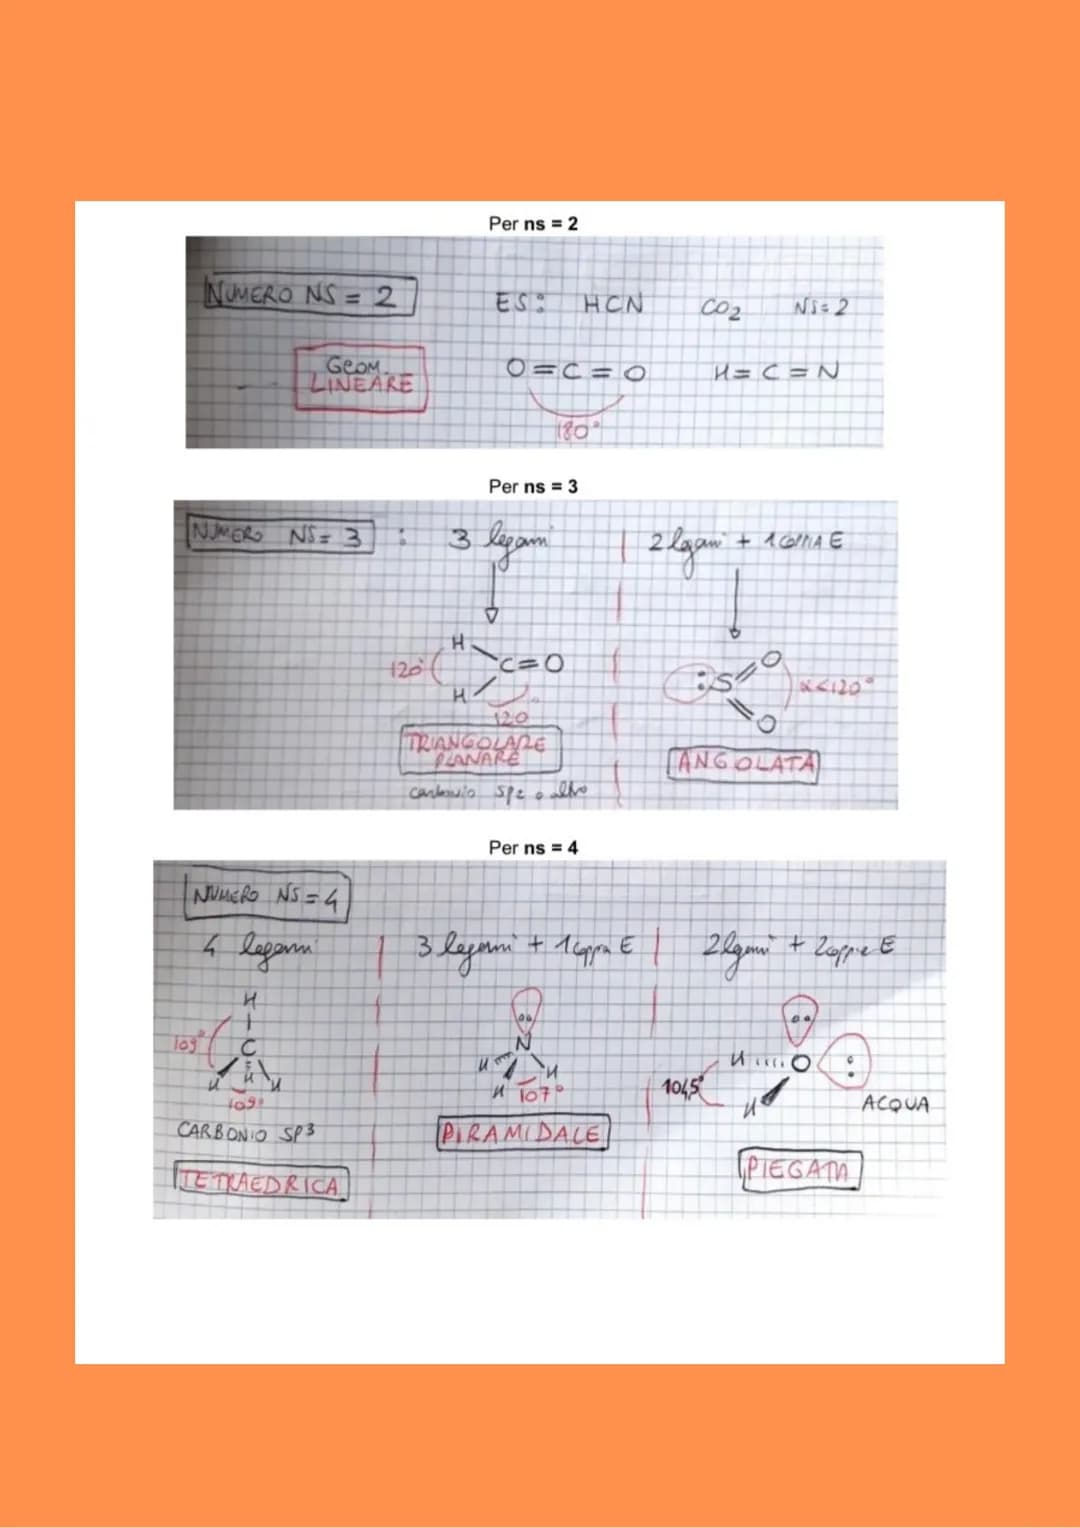 Per ns = 2
NUMERO NS = 2
ES: HCN CO2 NS=2
GEOM.
LINEARE
O=C=O H=C=N
180°
Per ns = 3
NUMERO NS=3 : 3 legami | 2 legami + 1 COPPIA E
H
120° C=O :S O α<120°
H O
120°
TRIANGOLARE
PLANARE
ANGOLATA
carbonio sp2 o altro
Per ns = 4
NUMERO NS=4
4 legami | 3 legami + 1 coppia E | 2 legami + 2 coppie E
H
109° C
H H H
109°
CARBONIO SP3
TETRAEDRICA
N
H H
H 107°
PIRAMIDALE
H O
104,5°
H
ACQUA
PIEGATA